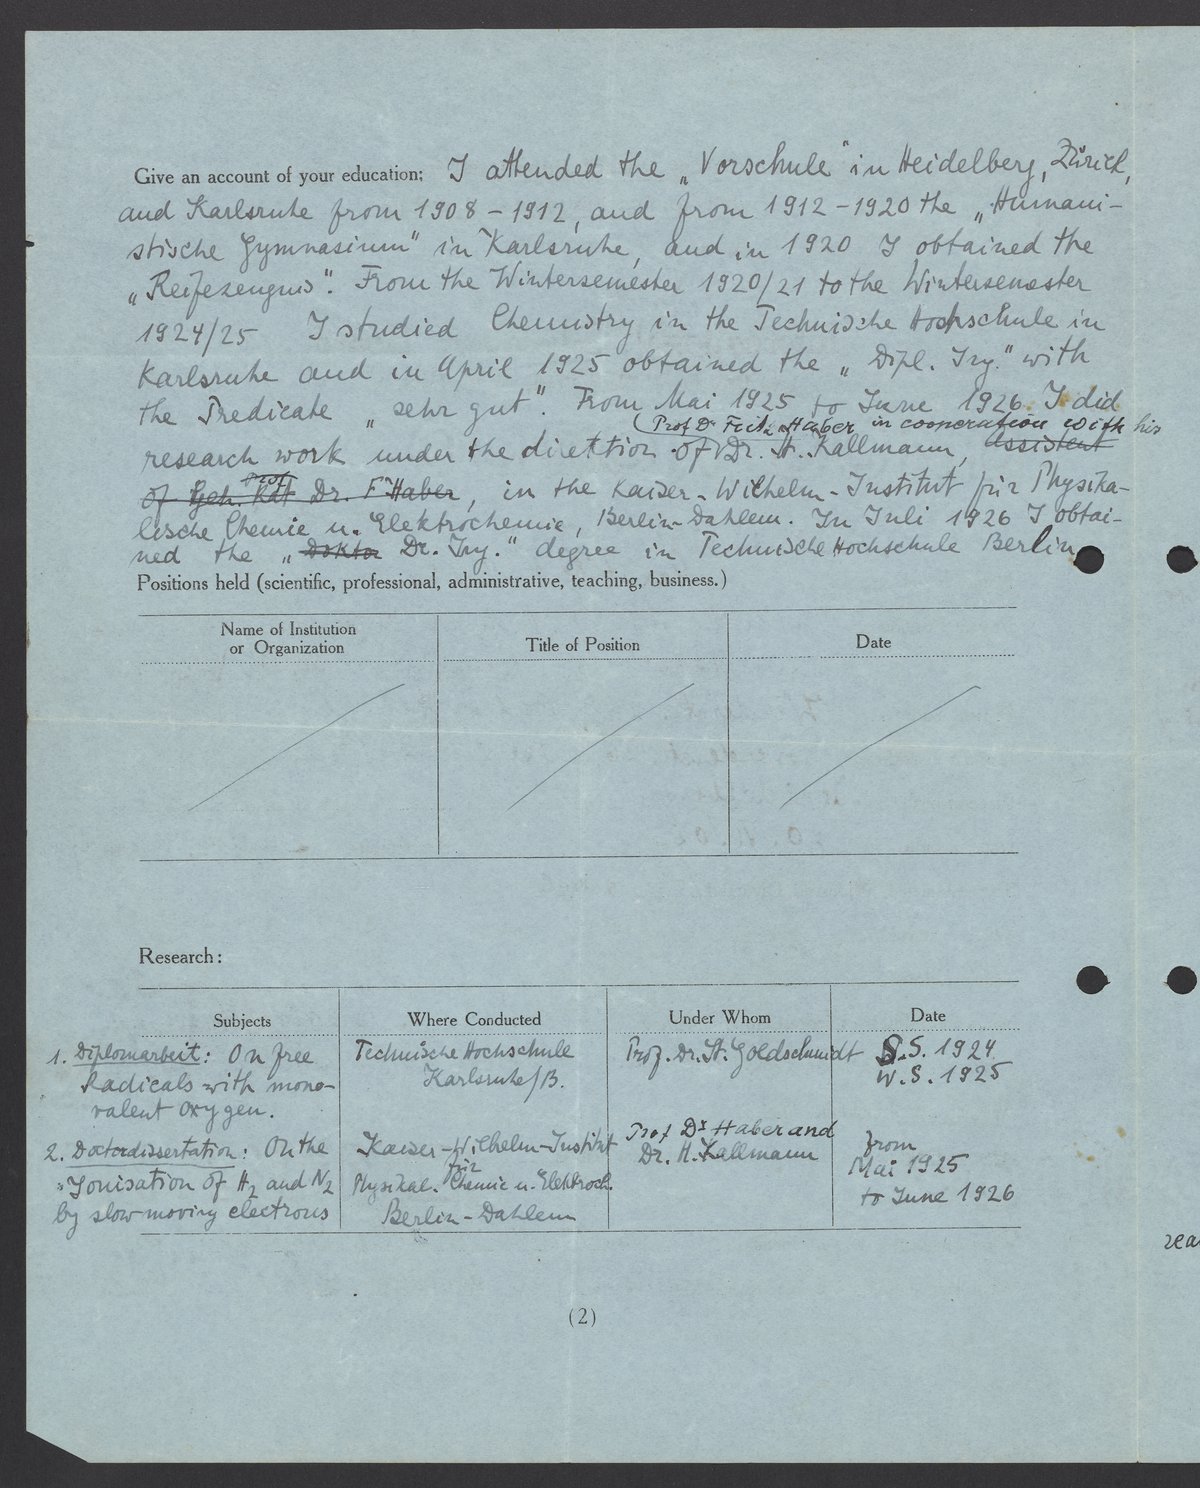 Give an account of your education: I attended the „Vorschule" in Heidelberg, Zürich,
and Karlsruhe from 1908 - 1912, and from 1912 - 1920 the „Humani-
stische Gymnasium" in Karlsruhe, and in 1920 I obtained the
„Reifezeugnis". From the Wintersemester 1920/21 to the Wintersemester
1924/25 I studied Chemistry in the Technische Hochschule in
Karlsruhe and in April 1925 obtained the „Dipl. Ing." with
the Predicate „sehr gut". From Mai 1925 to June 1926 I did
Prof Dr Fritz Haber in cooperation with his
research work under the direktion of Dr. H. Kallmann, assistent
Prof
of Geh. Rat Dr. F Haber, in the Kaiser-Wilhelm-Institut für Physika-
lische Chemie u. Elektrochemie, Berlin-Dahlem. In Juli 1926 I obtai-
ned the „Doktor Dr. Ing." degree in Technische Hochschule Berlin
Positions held (scientific, professional, administrative, teaching, business.)
Name of Institution
or Organization
Title of Position
Date
Research:
Subjects
Where Conducted
Under Whom
Date
1. Diplomarbeit: On free
Radicals with mono-
valent oxygen.
Technische Hochschule
Karlsruhe/B.
Prof. Dr. St. Goldschmidt
S.S. 1924
W.S. 1925
2. Doctordissertation: On the
"Jonisation of H2 and N2
by slow moving electrons
Kaiser-Wilhelm-Institut
für
Physikal. Chemie u. Elektroch.
Berlin-Dahlem
Prof Dr Haber and
Dr. H. Kallmann
from
Mai 1925
to June 1926
(2)